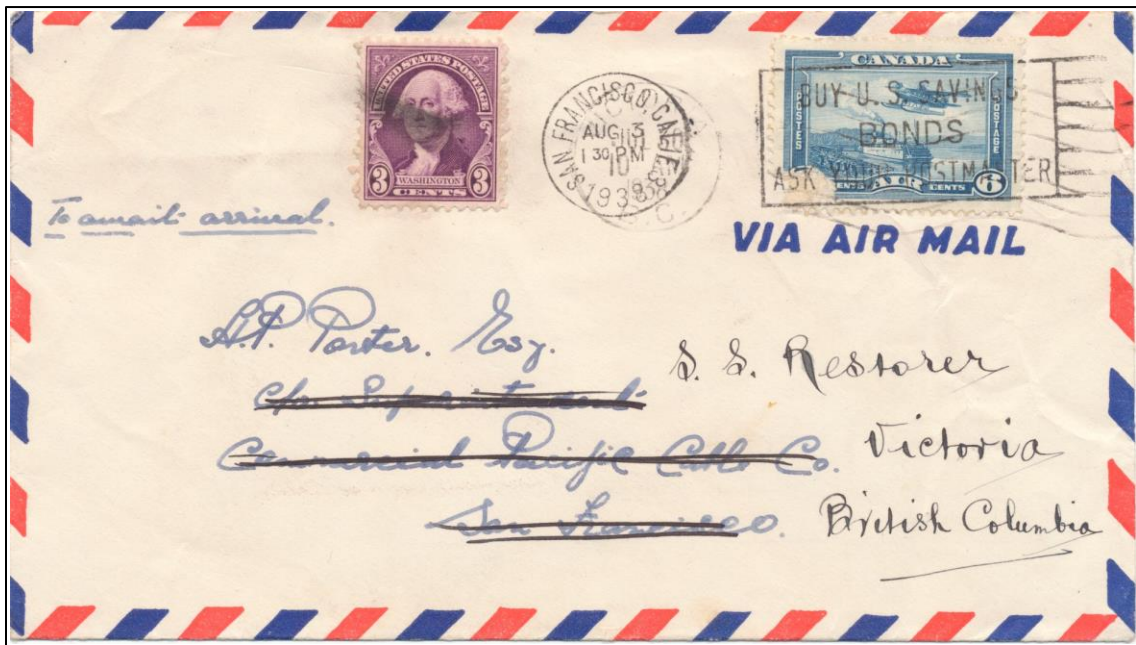 UNITED STATES POSTAGE
3 WASHINGTON 3
CENTS
SAN FRANCISCO CALIF.
AUG 3
1 30 PM
1938
CANADA
POSTES POSTAGE
CENTS AIR CENTS 6
BUY U. S. SAVINGS
BONDS
ASK YOUR POSTMASTER
To await arrival.
VIA AIR MAIL
A.P. Porter. Esq.
c/o Superintendent
Commercial Pacific Cable Co.
San Francisco.
S. S. Restorer
Victoria
British Columbia